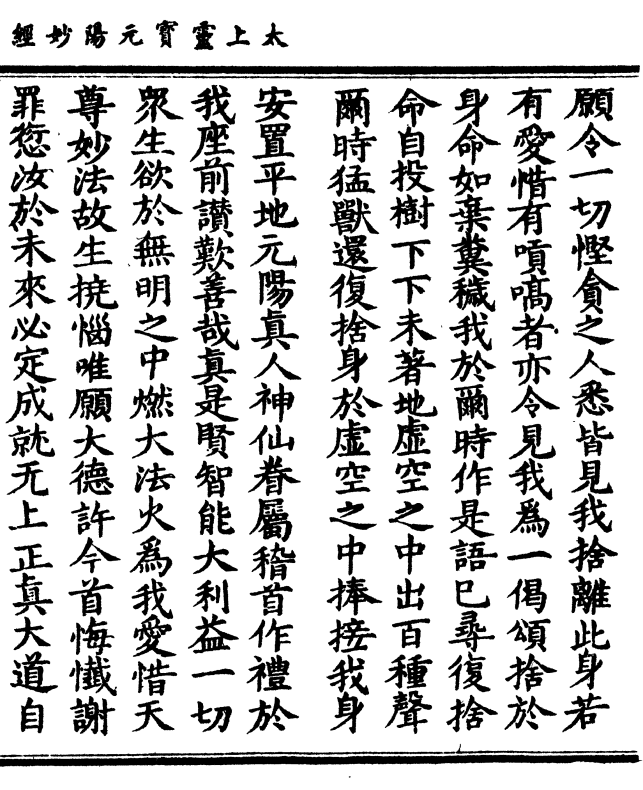 太上靈寳元陽妙經
願令一切慳貪之人悉皆見我捨離此身若
有愛惜有嗔髙者亦令見我為一偈頌捨於
身命如棄糞穢我於爾時作是語已尋復捨
命自投樹下下未著地虛空之中出百種聲
爾時猛獸還復捨身於虛空之中捧接我身
安置平地元陽真人神仙眷屬稽首作禮於
我座前讃歎善哉真是賢智能大利益一切
衆生欲於無明之中燃大法火為我愛惜天
尊妙法故生撓惱唯願大德許今首悔懴謝
罪愆汝於未來必定成就无上正真大道自